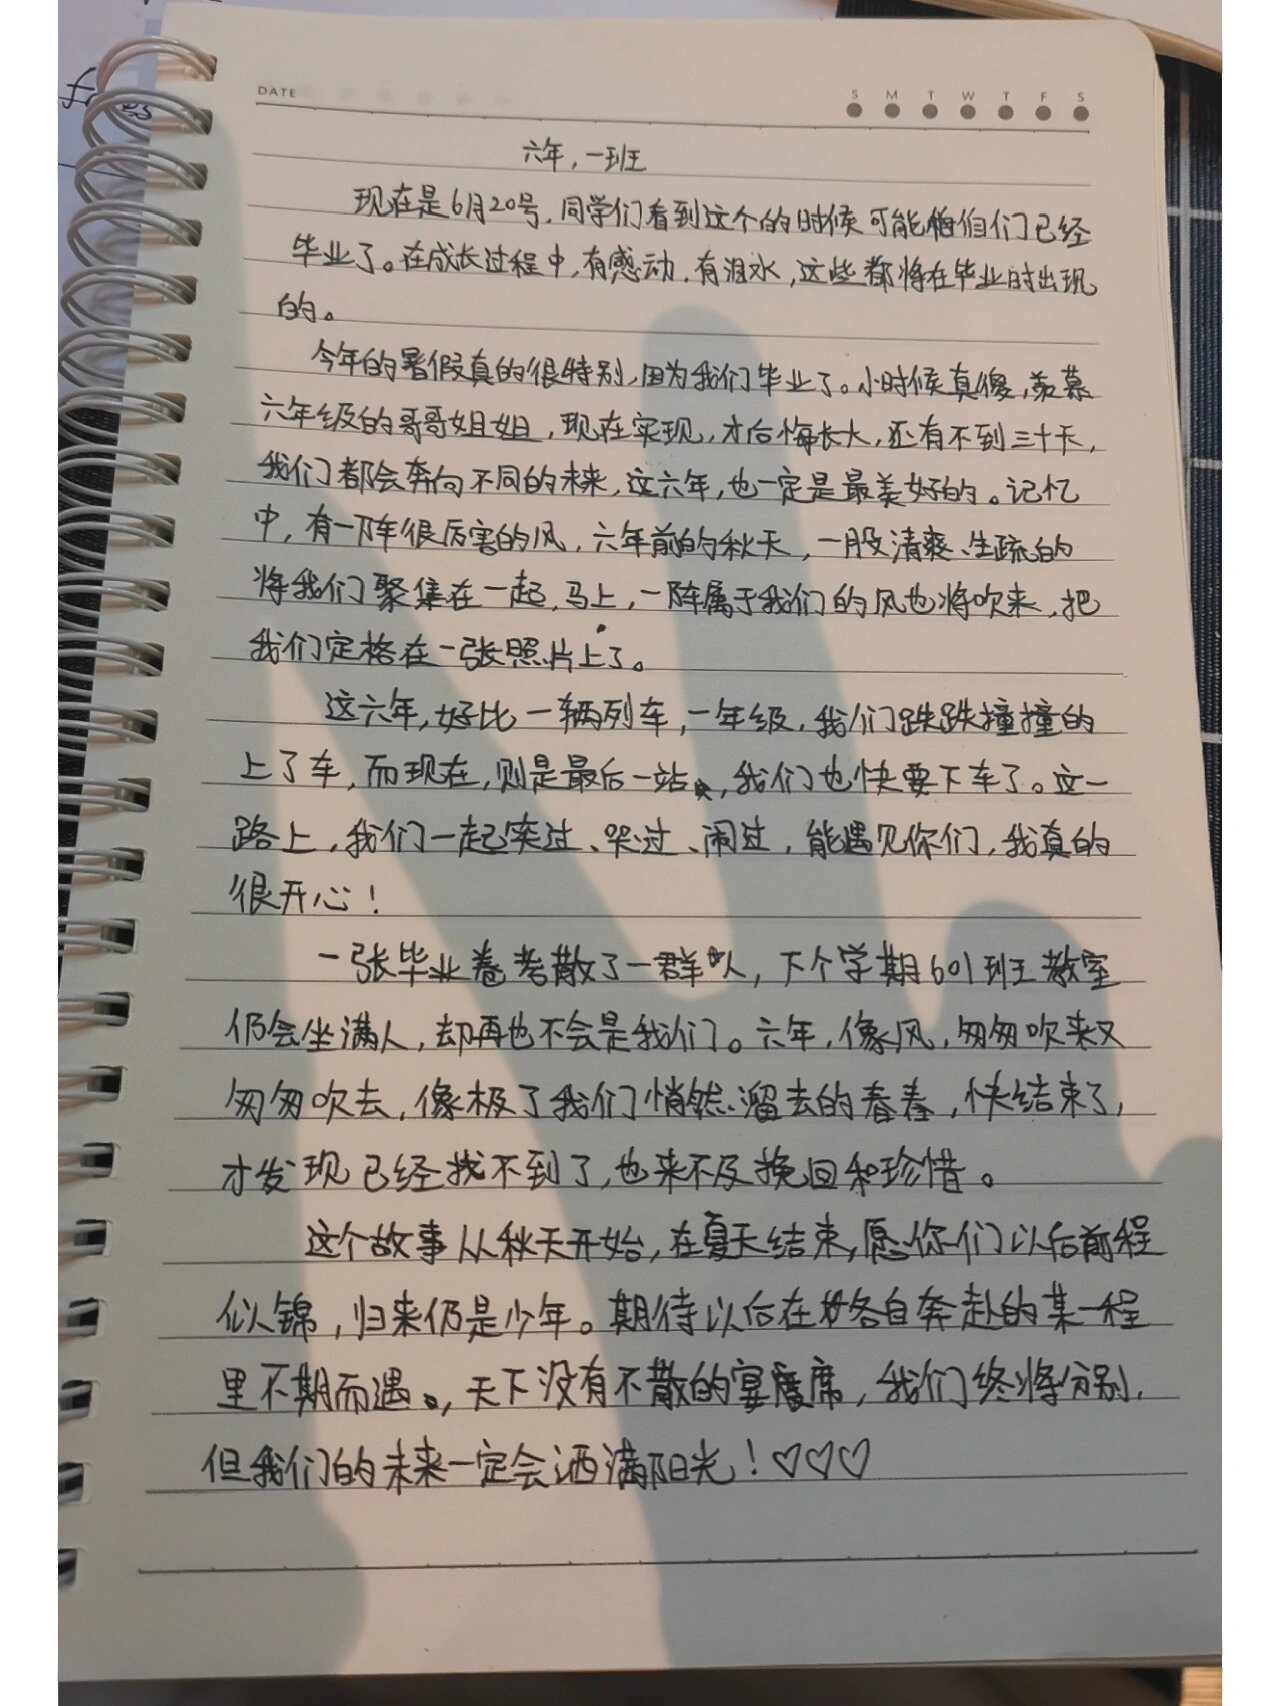 DATE
S M T W T F S
六年，一班
现在是6月20号，同学们看到这个的时候可能咱们已经
毕业了。在成长过程中，有感动，有泪水，这些都将在毕业时出现
的。
今年的暑假真的很特别，因为我们毕业了。小时候真傻，羡慕
六年级的哥哥姐姐，现在实现，才后悔长大，还有不到三十天，
我们都会奔向不同的未来，这六年，也一定是最美好的。记忆
中，有一阵很厉害的风，六年前的秋天，一股清爽、生疏的
将我们聚集在一起，马上，一阵属于我们的风也将吹来，把
我们定格在一张照片上了。
这六年，好比一辆列车，一年级，我们跌跌撞撞的
上了车，而现在，则是最后一站，我们也快要下车了。这一
路上，我们一起笑过、哭过、闹过，能遇见你们，我真的
很开心！
一张毕业卷考散了一群人，下个学期601班教室
仍会坐满人，却再也不会是我们。六年，像风，匆匆吹来又
匆匆吹去，像极了我们悄然溜去的春春，快结束了，
才发现已经找不到了，也来不及挽回和珍惜。
这个故事从秋天开始，在夏天结束，愿你们以后前程
似锦，归来仍是少年。期待以后在各自奔赴的某一程
里不期而遇。，天下没有不散的宴席，我们终将分别，
但我们的未来一定会洒满阳光！♡♡♡